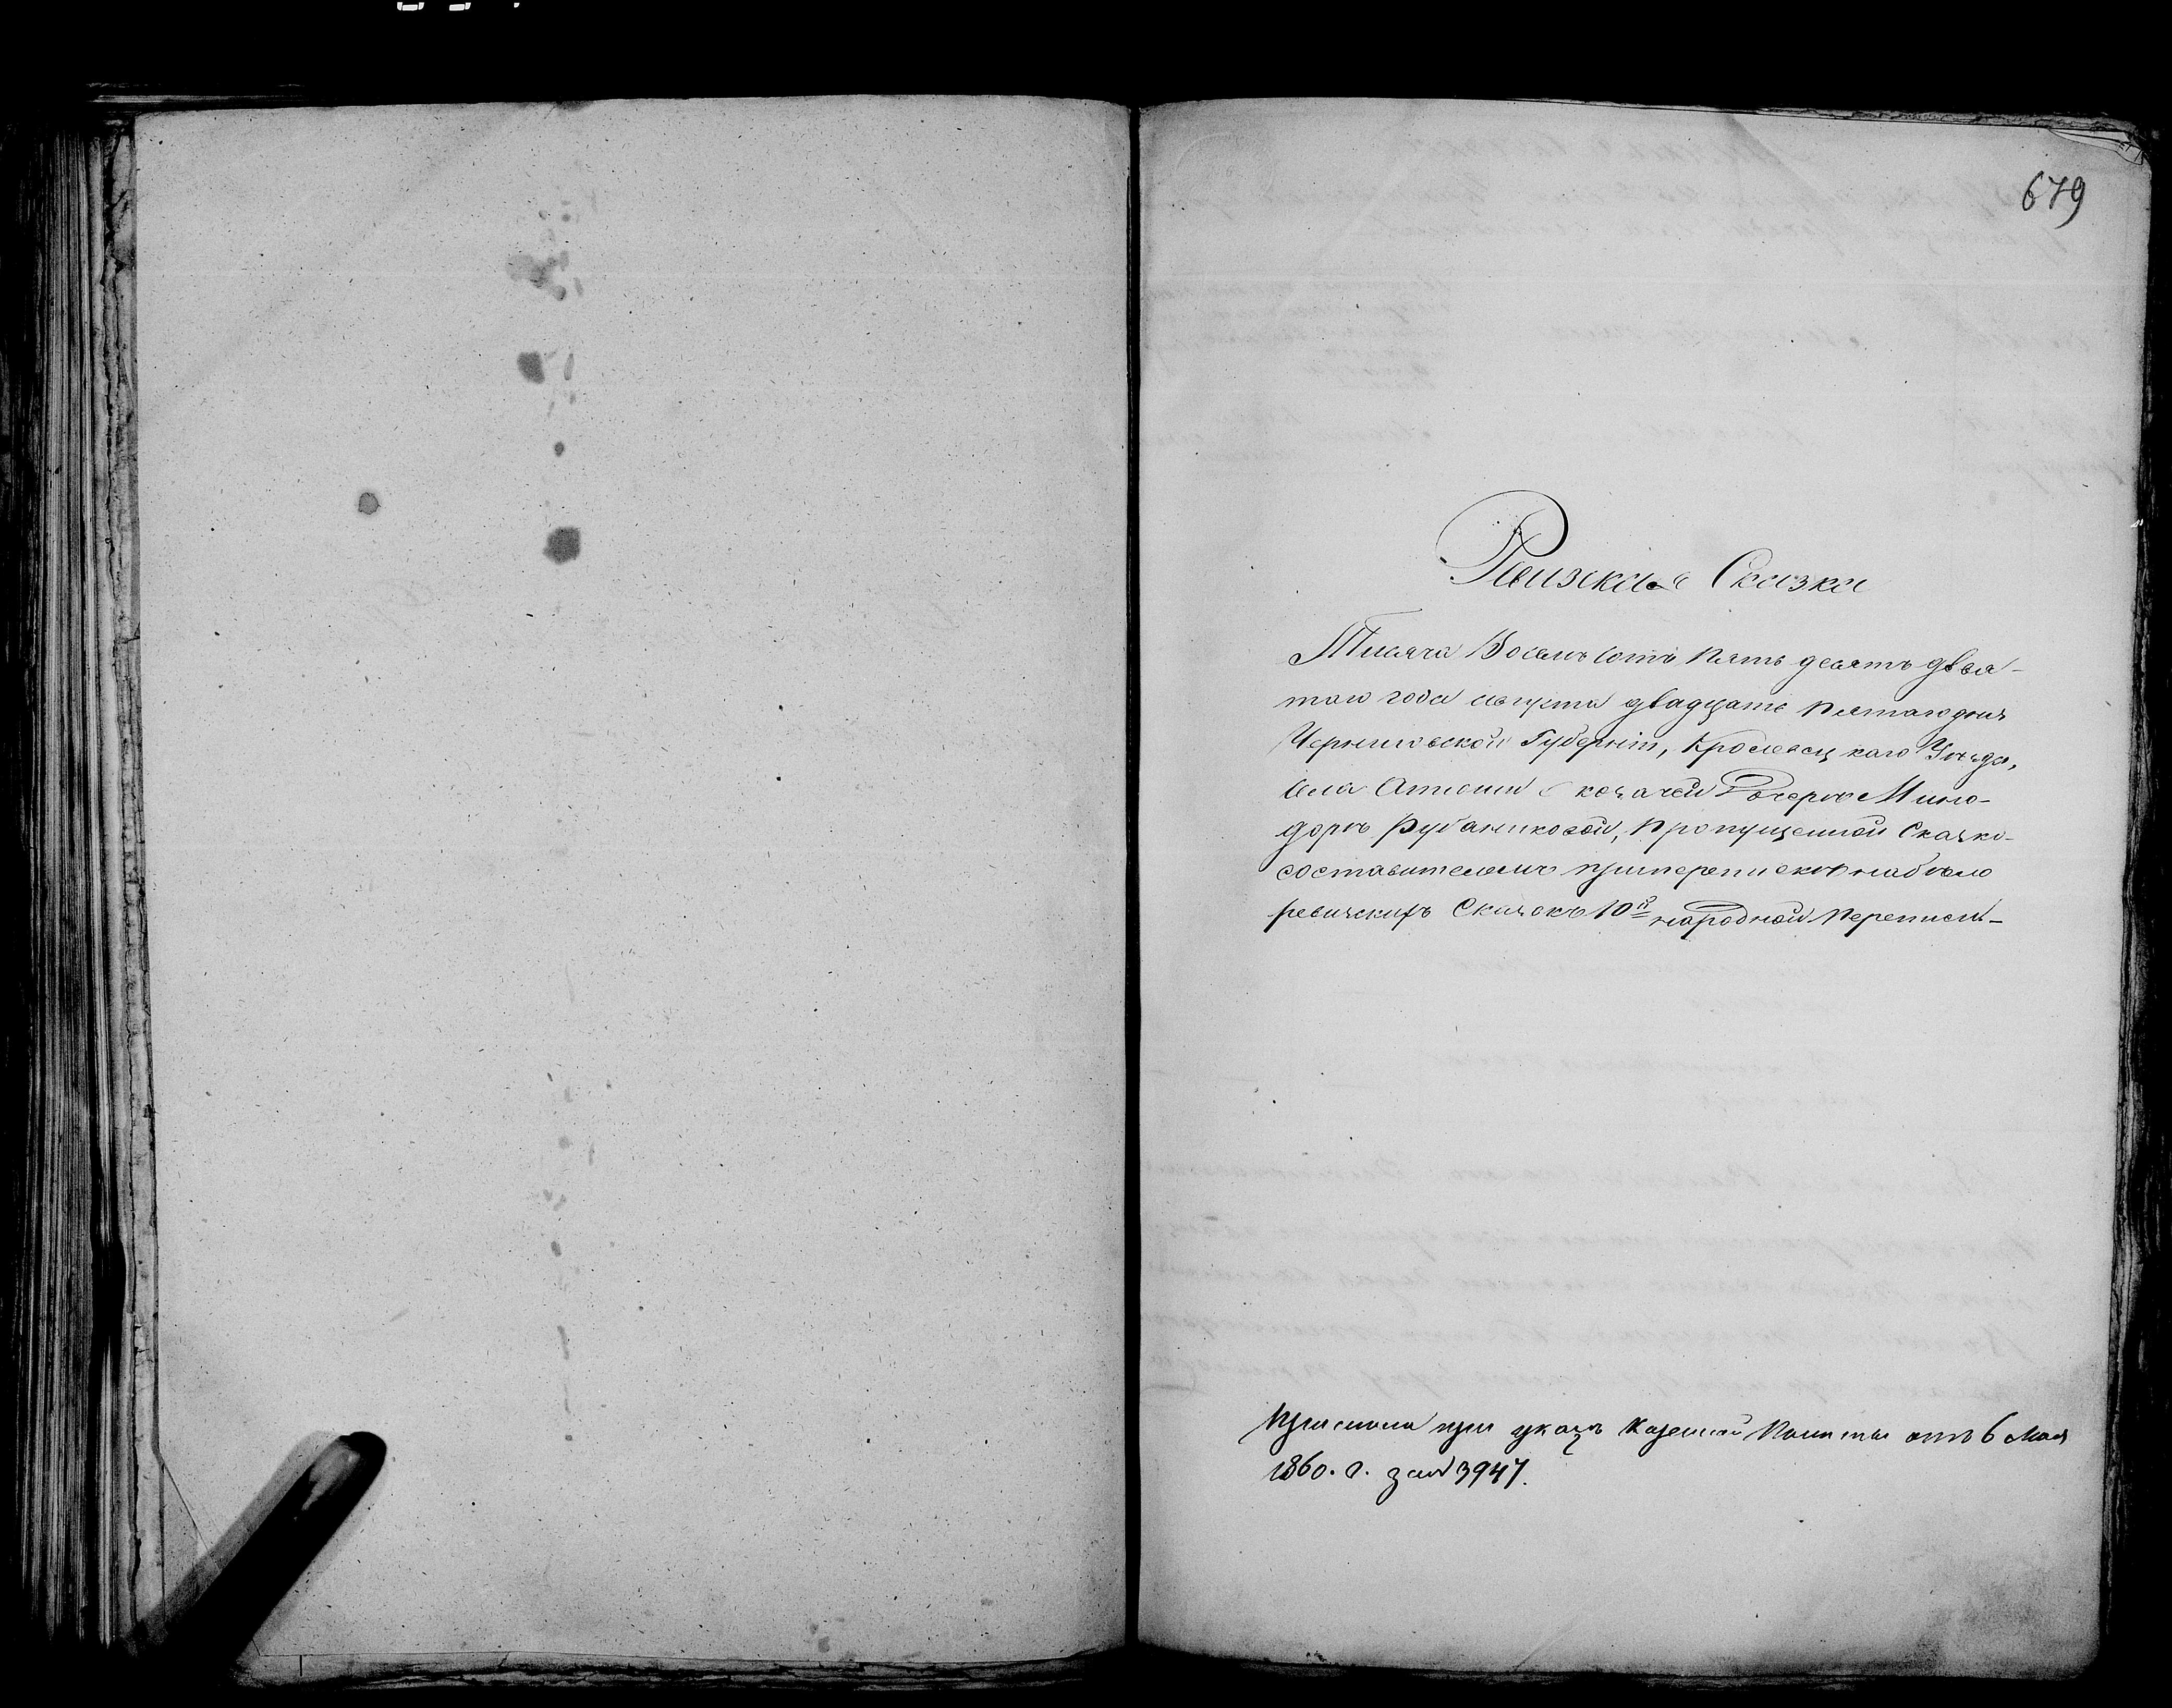 679
Ревизская Сказка
Тисяча Восемь сотъ Пять десятъ девя-
таго года августа двадцать Пятаго дня
Черниговской Губерніи, Кролевецкаго Уезда,
села Атюши козачей Дочери Мино-
доры Рубаниковой, Пропущенной Сказко-
составителемъ при перепискѣ на бѣло
ревизскихъ Сказокъ 10й народной Переписи_
Прислана при указѣ Казенной Палаты отъ 6 Мая
1860. г. за № 3947.